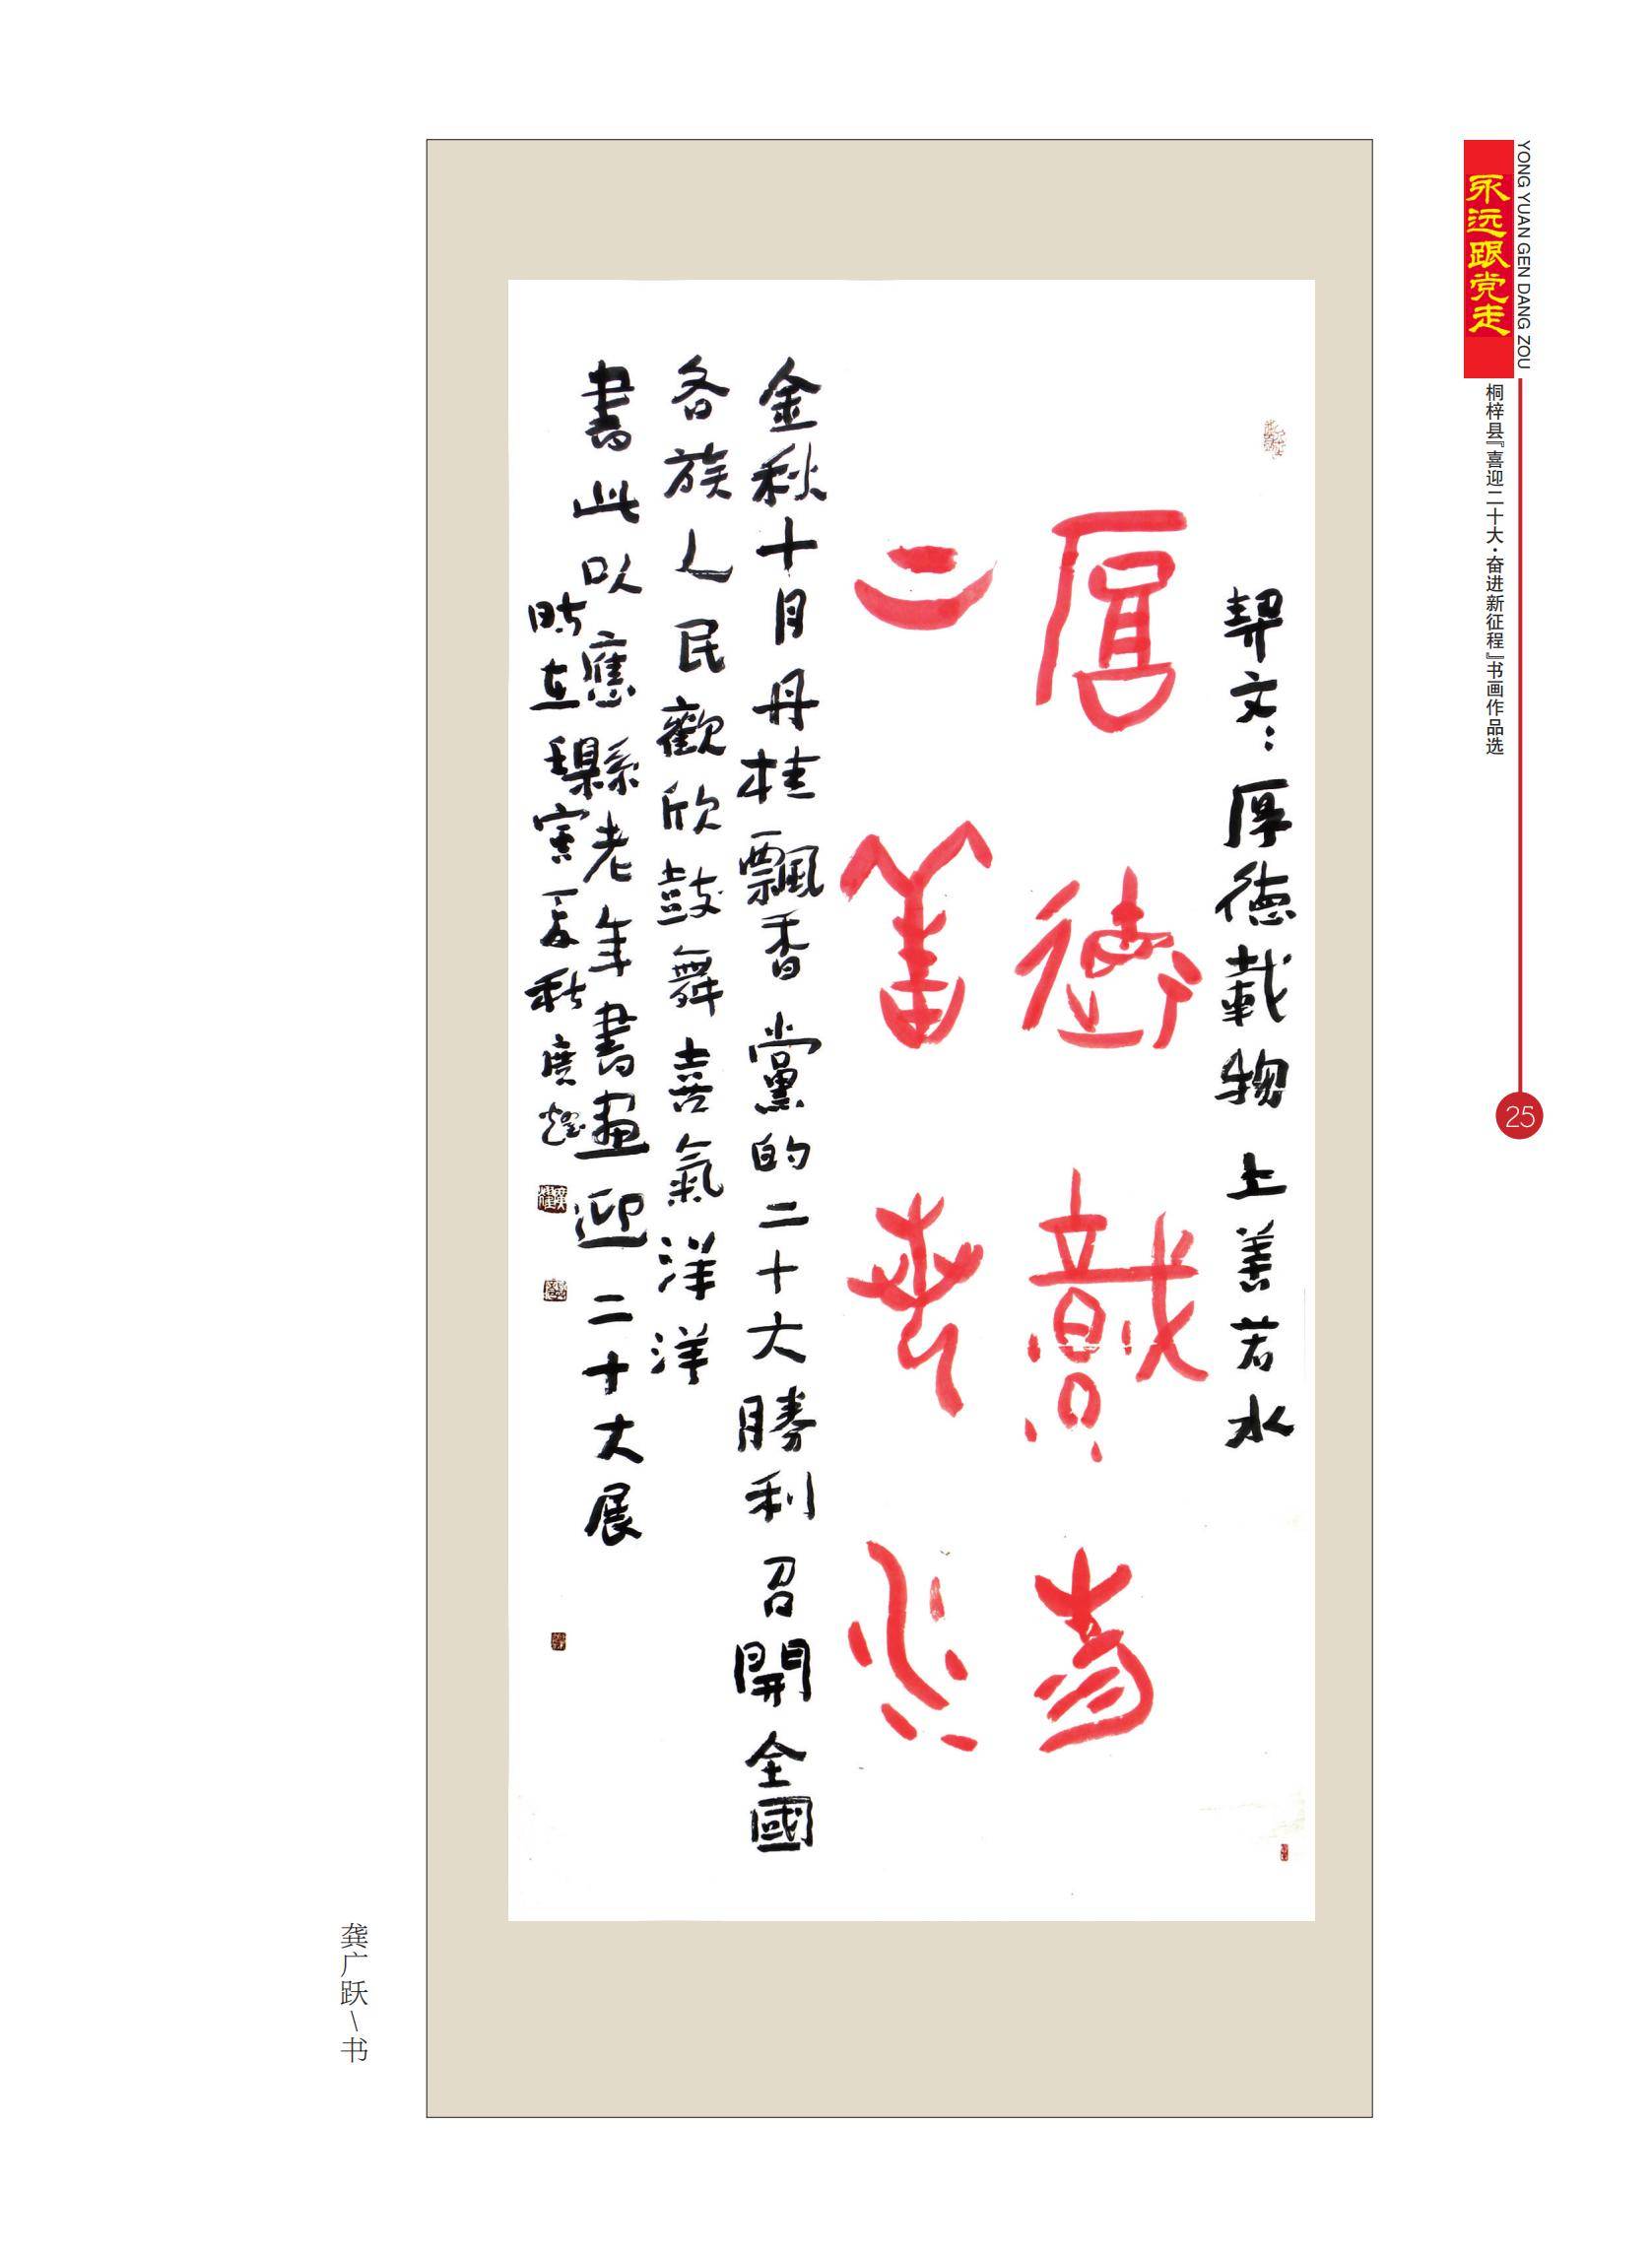 永远跟党走
YONG YUAN GEN DANG ZOU
桐梓县『喜迎二十大·奋进新征程』书画作品选
25
契文：厚德載物 上善若水
厚德載物
上善若水
金秋十月丹桂飄香黨的二十大勝利召開全國
各族人民歡欣鼓舞喜氣洋洋
書此以應縣老年書畫迎二十大展
時在 寅 秋 廣
龚广跃\书